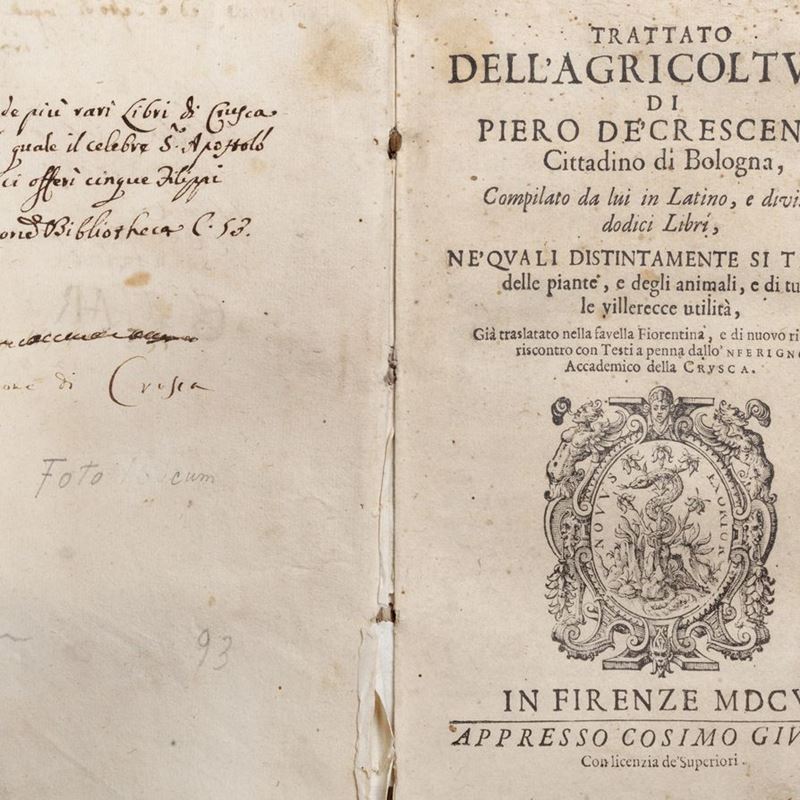 de più rari Libri di Crusca
quale il celebre S.r Apostolo
ci offerì cinque Filippi
Bibliotheca C. 53.
di Crusca
Foto
93
TRATTATO
DELL'AGRICOLTV
DI
PIERO DE'CRESCEN
Cittadino di Bologna,
Compilato da lui in Latino, e divi
dodici Libri,
NE'QVALI DISTINTAMENTE SI T
delle piante, e degli animali, e di tu
le villerecce utilità,
Già traslatato nella favella Fiorentina, e di nuovo ri
riscontro con Testi a penna dallo 'NFERIGNO
Accademico della CRVSCA.
NOVVS EXORIOR
IN FIRENZE MDCV
APPRESSO COSIMO GIV
Con licenzia de'Superiori.